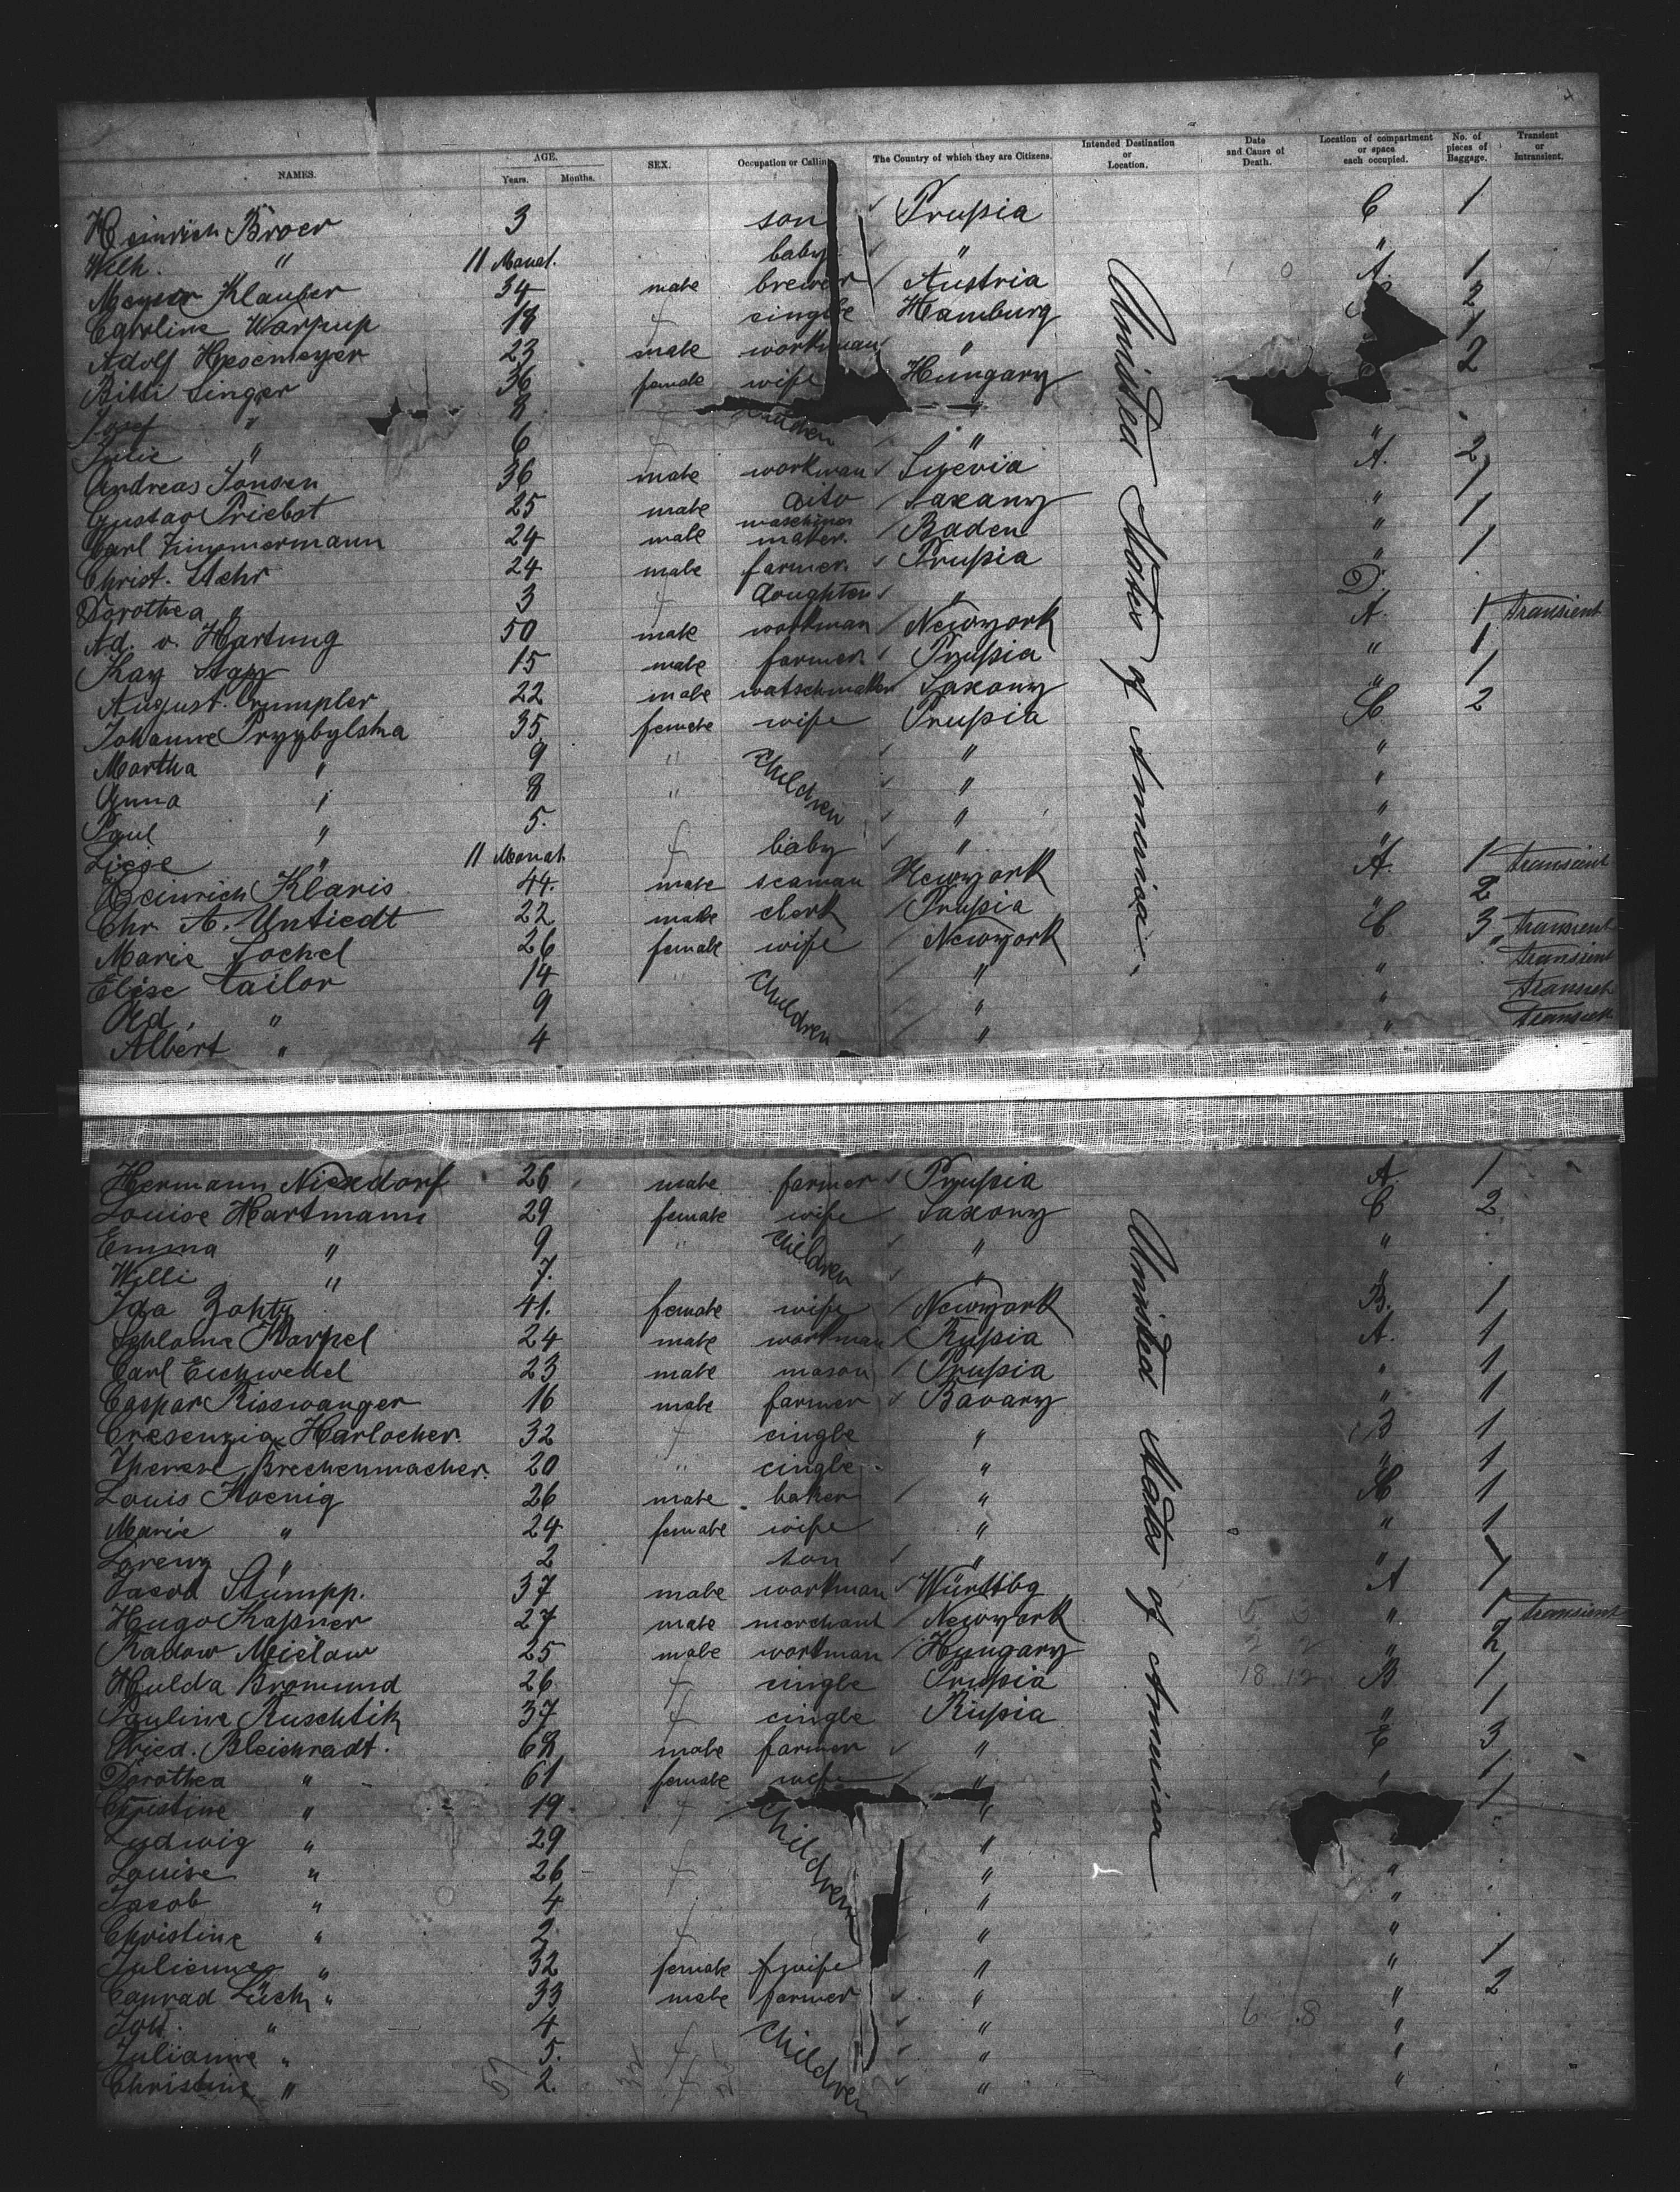 NAMES. AGE. Years. Months. SEX. Occupation or Calling The Country of which they are Citizens. Intended Destination or Location. Date and Cause of Death. Location of compartment or space each occupied. No. of pieces of Baggage. Transient or Intransient.
Heinrich Broer 3 son Prussia C 1
Wilh. " 11 Monat. baby " "
Meyer Klauber 34 male brewer Austria A. 1
Caroline Warpup 18 f single Hamburg 2
Adolf Hesemeyer 23 male workman " 1
Bitti Singer 36 female wife Hungary 2
Josef " 8 children "
Julie " 6 f " "
Andreas Jonsen 36 male workman Svevia A. 2
Gustav Priebst 25 male dito Saxony " 1
Carl Zimmermann 24 male maschinen maker. Baden " 1
Christ. Stehr 24 male farmer Prussia " 1
Dorothea " 3 f doughter " D.
Ad. v. Hartung 50 male workman Newyork A. 1 transient
Kay Stapp 15 male farmer Prussia " 1
August. Crumpler 22 male watschmaker Saxony " 1
Johanne Pryybylska 35 female wife Prussia C 2
Martha " 9 " children " "
Anna " 8 " " "
Paul " 5. " "
Liese " 11 Monat f baby " "
Heinrich Klaris 44. male seaman Newyork A. 1 transient
Chr. A. Untiedt 22 male clerk Prussia " 2
Marie Sochel 26 female wife Newyork C 3 transient
Elise Tailor 14 " children " " " transient
Ad. " 9 " " transient
Albert " 4 " " transient
United States of America.
Hermann Nixdorf 26 male farmer Prussia A. 1
Louise Hartmann 29 female wife Saxony C 2
Emma " 9 " children " "
Willi " 7. " "
Ida Zahty 41. female wife Newyork B. 1
Schlome Karpel 24 male workman Russia A. 1
Carl Eichwedel 23 male mason Prussia " 1
Caspar Risswanger 16 male farmer Bavary " 1
Cresenzia Harlocher. 32 f cingle " B 1
Therese Brechenmacher. 20 " cingle " " 1
Louis Koenig 26 male baker " C 1
Marie " 24 female wife " " 1
Lorenz " 2 son " "
Jacob Stümpp. 37 male workman Württbg A 1
Hugo Kassner 27 male merchant Newyork " 1 transient
Radow Mislaw 25 male workman Hungary " 2
Hulda Bromund 26 f cingle Prussia 18 12 B 1
Pauline Ruschtik 37 f cingle Russia " 1
Fried. Bleichradt. 68 male farmer " C 3
Dorothea " 61 female wife " " 1
Christine " 19 f children " 1
Ludwig " 29 "
Louise " 26 f " "
Jacob " 4 " "
Christine " 2 f " "
Julienne " 32 female wife " " 1
Conrad Lüch " 33 male farmer " " 2
Joh. " 4 children " 6 8 "
Julianne " 5. f " "
Christine " 2. f " "
United States of America